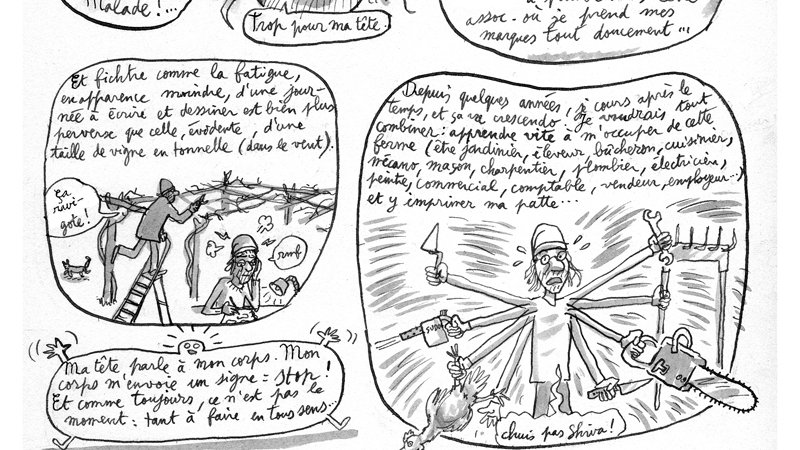 Malade !...
Trop pour ma tête.
assoc. où je prend mes
marques tout doucement...
Et fichtre comme la fatigue,
en apparence moindre, d'une jour-
née à écrire et dessiner est bien plus
perverse que celle, évidente, d'une
taille de vigne en tonnelle (dans le vent).
ça
ravi-
gote !
rmb
Ma tête parle à mon corps. Mon
corps m'envoie un signe = stop !
Et comme toujours, ce n'est pas le
moment : tant à faire en tous sens...
Depuis quelques années, je cours après le
temps, et ça va crescendo. Je voudrais tout
combiner : apprendre vite à m'occuper de cette
ferme (être jardinier, éleveur, bûcheron, cuisinier,
mécano, maçon, charpentier, plombier, électricien,
peintre, commercial, comptable, vendeur, employeur...)
et y imprimer ma patte...
chuis pas Shiva !